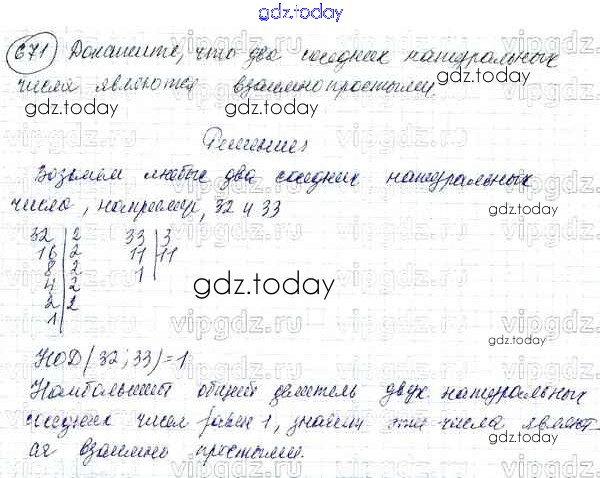 gdz.today
671 Докажите, что два соседних натуральных
числа являются взаимнопростыми.
gdz.today gdz.today gdz.today
Решение:
Возьмем любые два соседних натуральных
числа, например, 32 и 33
gdz.today
32 | 2 33 | 3
16 | 2 11 | 11
8 | 2 1
4 | 2
2 | 2
1
gdz.today
vipgdz.ru
НОД (32; 33) = 1
Наибольший общий делитель двух натуральных
соседних чисел равен 1, значит эти числа являют-
ся взаимно простыми.
gdz.today gdz.today